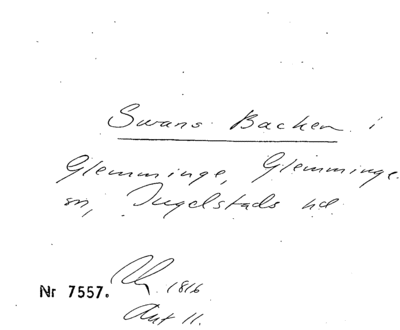 Swans Backen i
Glemminge, Glemminge
sn, Ingelstads hd.
Nr 7557. 1816
Ant 11.